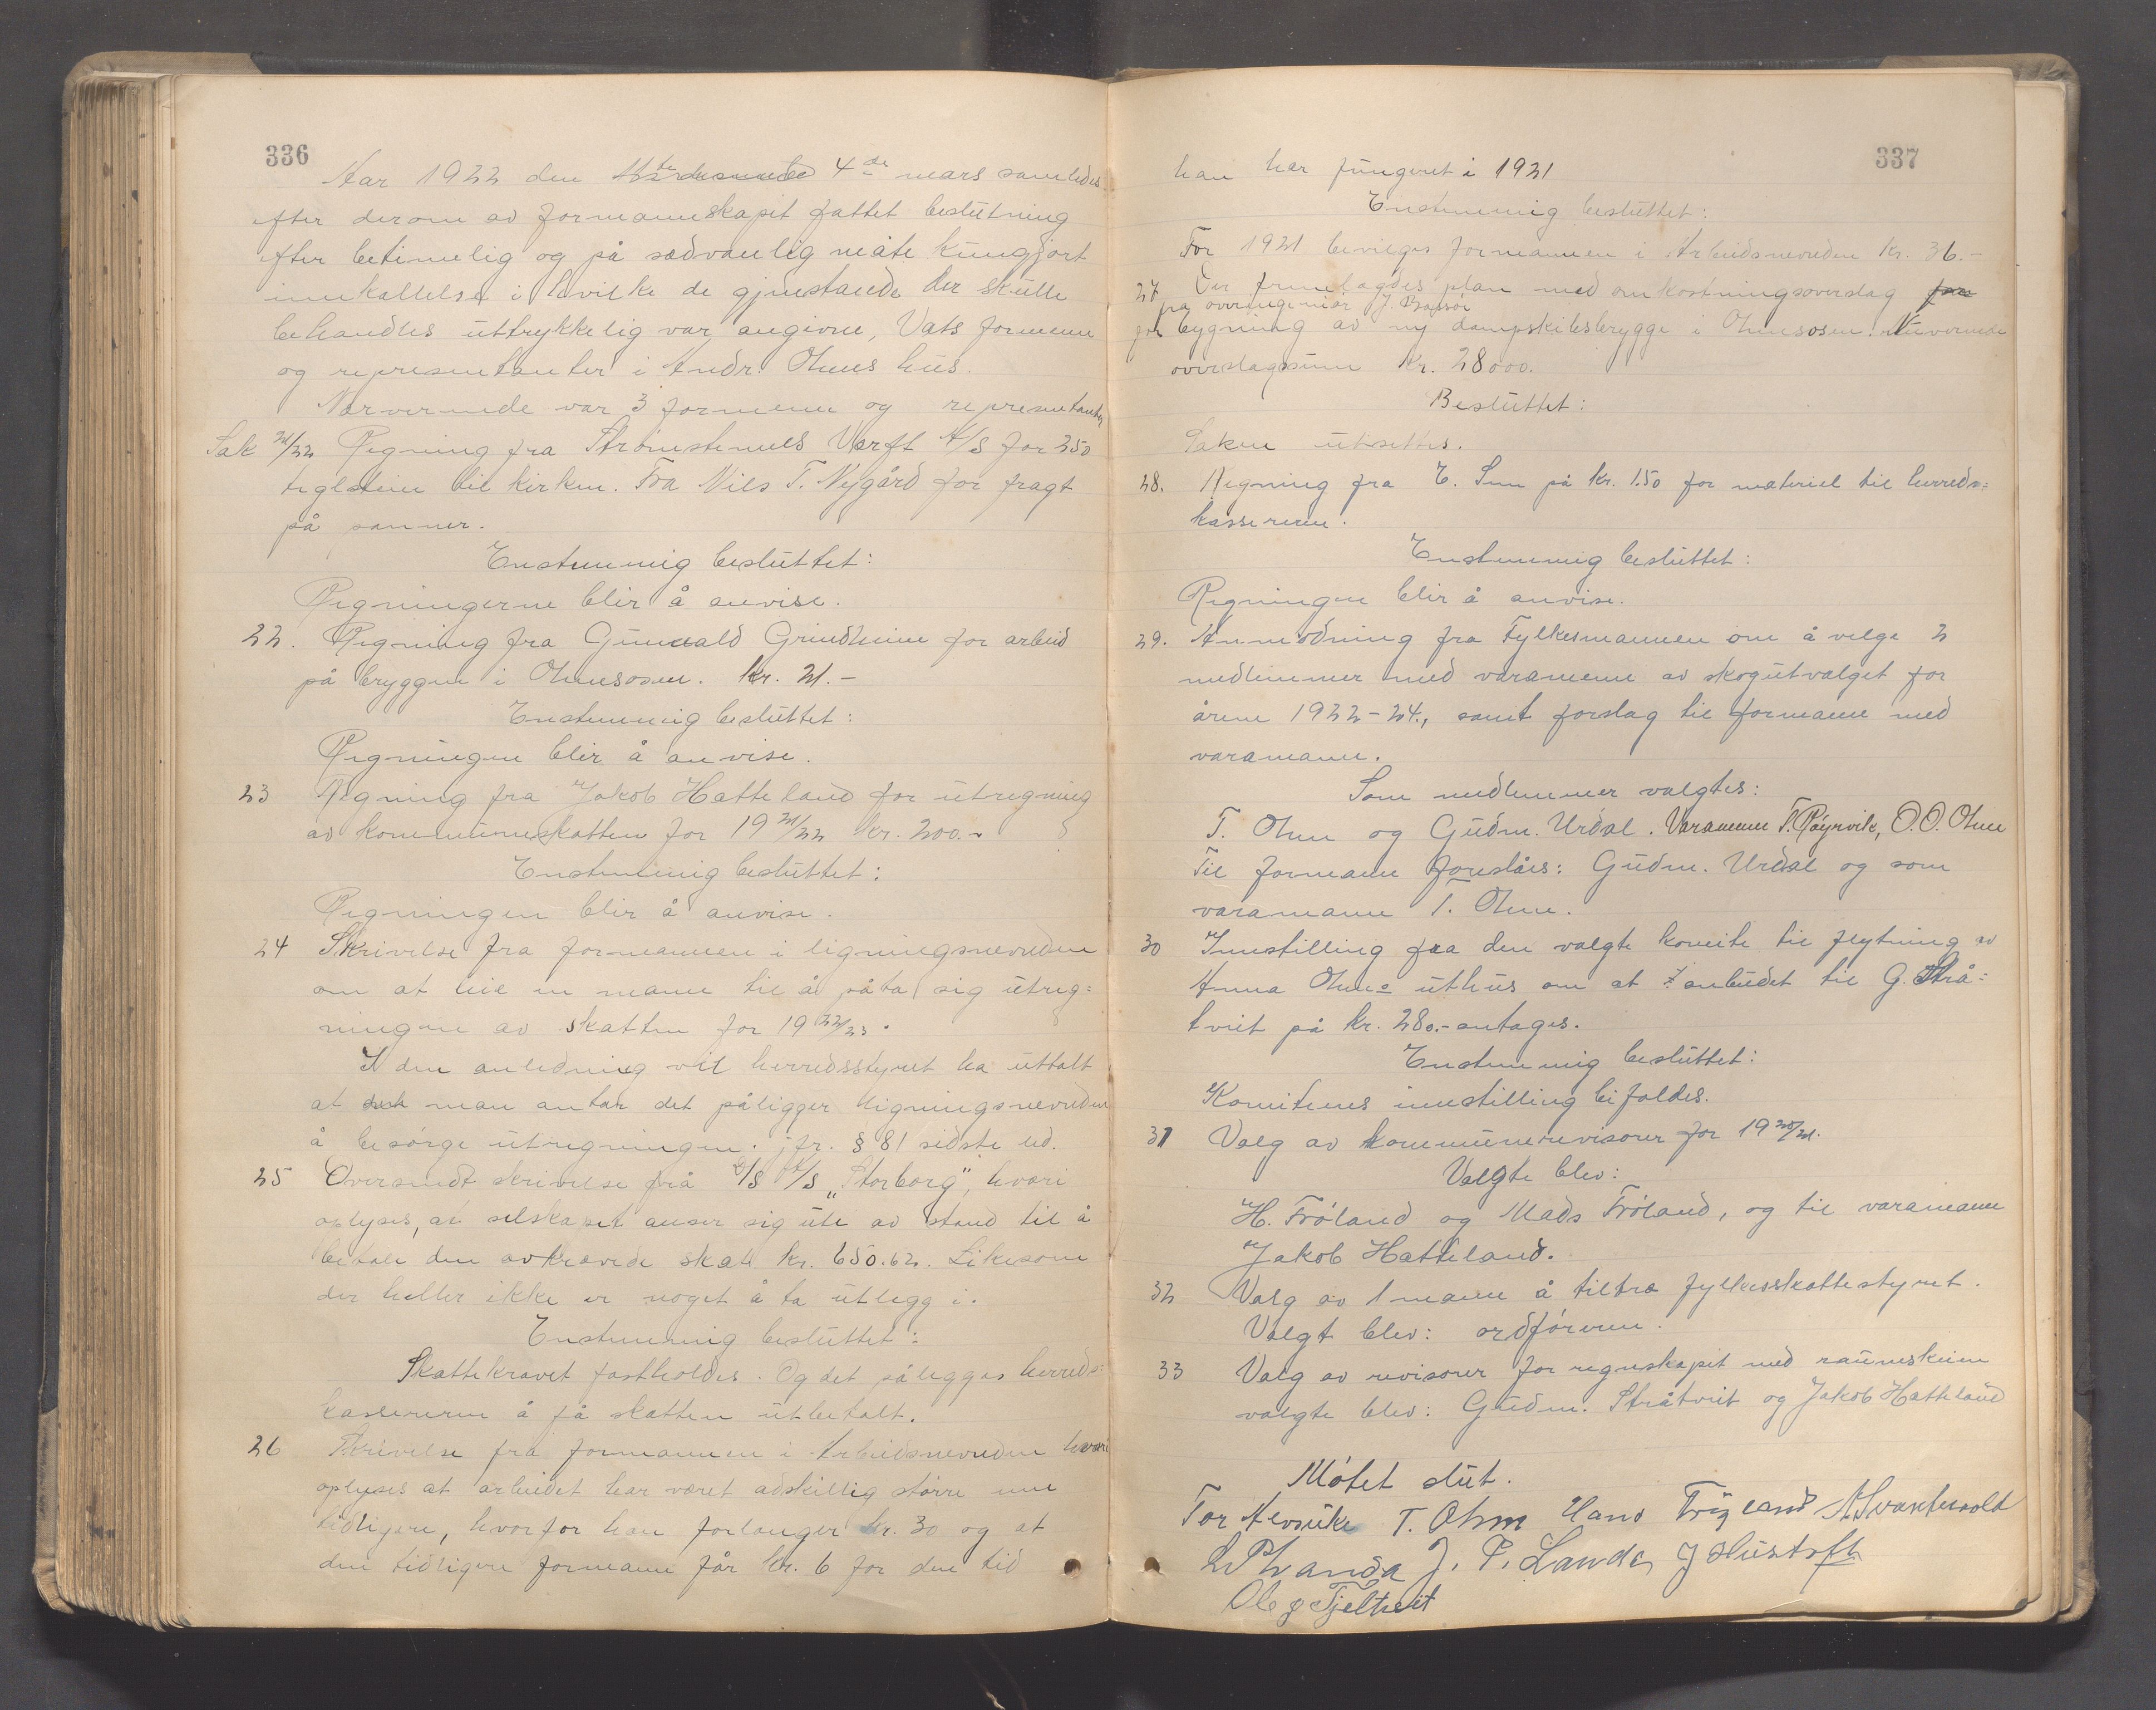 336
Aar 1922 den 4de mars samledes
efter derom av formannskapit fattet beslutning
efter betimelig og på sædvanlig måte kungjort
innkallelse i hvilke de gjenstande der skulle
behandles uttrykkelig var angivne, Vats formenn
og representanter i Andr. Ølmes hus.
Nærverende var 3 formenn og representanter
Sak 21/22 Regning fra Strømstenuls Verft A/S for 250
teglstein til kirken. Fra Nils T. Nygård for fragt
på samme.
Enstemmig besluttet:
Regningerne blir å anvise.
22. Regning fra Gunvald Grindheim for arbeid
på bryggen i Ølmesosen. kr. 21.-
Enstemmig besluttet:
Regningen blir å anvise.
23 Regning fra Jakob Hatteland for utregning
av kommuneskatten for 1921/22 kr. 200.-
Enstemmig besluttet:
Regningen blir å anvise.
24 Skrivelse fra formannen i ligningsnevnden
om at leie en mann til å påta sig utreg=
ningen av skatten for 1922/23.
I den anledning vil herredsstyret ha uttalt
at man antar det påligger ligningsnevnden
å besørge utregningen. jfr. § 81 sidste led.
25 Oversendt skrivelse frå D/S A/S „Storborg", hvori
oplyses, at selskapet anser sig ute av stand til å
betale den avkrævede skatt kr. 650.62. Likesom
der heller ikke er noget å ta utlegg i.
Enstemmig besluttet:
Skattekravet fastholdes. Og det pålegges herreds=
kassereren å få skatten utbetalt.
26 Skrivelse fra formannen i Arbeidsnevnden hvori
oplyses at arbeidet har været adskillig større enn
tidligere, hvorfor han forlanger kr. 30 og at
den tidligere formann får kr. 6 for den tid
337
han har fungeret i 1921
Enstemmig besluttet:
For 1921 bevilges formannen i Arbeidsnevnden kr. 36.-
27 Der fremlagdes plan med omkostningsoverslag for
fra overingeniør J.
for bygning av ny dampskibsbrygge i Ølmesosen. Nuverende
overslagssum kr. 28000.
Besluttet:
Saken utsettes.
28. Regning fra E. Sunn på kr. 1.50 for materiel til herreds=
kassereren.
Enstemmig besluttet:
Regningen blir å anvise.
29. Anmodning fra Fylkesmannen om å velge 2
medlemmer med varamenn av skogutvalget for
årene 1922-24., samt forslag til formann med
varamann.
Som medlemmer valgtes:
T. Ølmn og Gudm. Urdal. Varamenn T. Røyrvik, O.O. Ølmn
Til formann foreslåes: Gudm. Urdal og som
varamann T. Ølmn.
30 Innstilling fra den valgte komite til flytning av
Anna Ølmes uthus om at anbudet til G. Strå=
tveit på kr. 280.- antages.
Enstemmig besluttet:
Komiteens innstilling bifaldes.
31 Valg av kommunerevisorer for 1920/21.
Valgte blev:
H. Frøland og Mads Frøland, og til varamann
Jakob Hatteland.
32 Valg av 1 mann å tiltræ fylkesskattestyret.
Valgt blev: ordføreren.
33 Valg av revisorer for regnskapit med rauneskeim
valgte blev: Gudm. Stråtveit og Jakob Hatteland
Møtet slut.
Tor Alvsvike T. Ølmn Hans Frøland
J. P. Landa J Hustoft
Ole G Fjeltveit